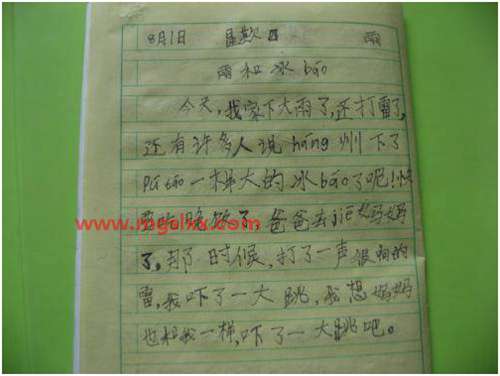 8月1日 星期日 雨
雨和冰báo
今天,我家下大雨了,还打雷了,
还有许多人说háng州下了
pú táo一样大的冰báo了呢!快
要吃晚饭了爸爸去jiē妈妈
www.mgslxx.com
了,那时候,打了一声很响的
雷,我吓了一大跳,我想妈妈
也和我一样,吓了一大跳吧。